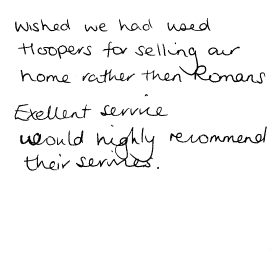 Wished we had used
Hoopers for selling our
home rather then Romans
Exellent service
would highly recommend
their services.